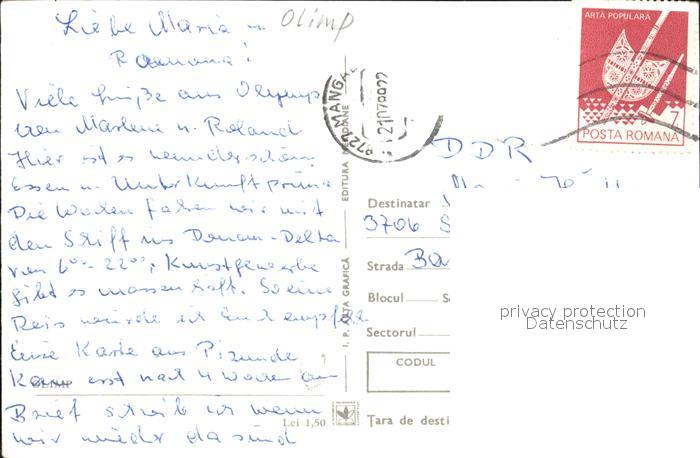 Liebe Maria u.
Olimp
Ramona!
Viele Grüße aus Olymp
von Marlene u. Roland
Hier ist es wunderschön
Essen u. Unterkunft prima
Die Woche fahren wir mit
den Schiff ins Donau-Delta
von 6⁰⁰-22⁰⁰, Kunstgewerbe
gibt es massenhaft. So eine
Reis würde ich Euch empfehl
Eine Karte aus Pizunda
Kam erst nach 4 Wochen an
OLIMP
Brief schreib ich wenn
wir wieder da sind
Lei 1,50
I. P. ARTA GRAFICĂ
EDITURA MERIDIANE
8727 MANGAL
21.07.9922
ARTĂ POPULARĂ
7
POSTA ROMANA
DDR
Destinatar
3706 S
Strada Ba
Blocul S
Sectorul
CODUL
Țara de desti
privacy protection
Datenschutz